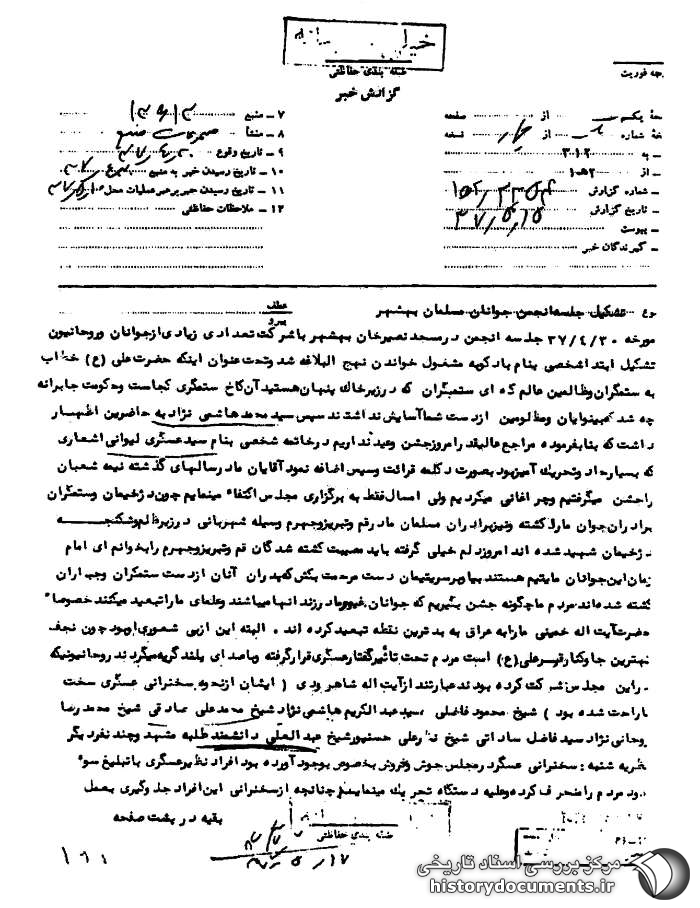 خیلی
طبقه بندی حفاظتی
گزارش خبر
جه فوریت
صفحه یکم از صفحه
نسخه شماره یک از چهار نسخه
ـ به ۳۰۱۲
ـ از ۱۰ه۲
ـ شماره گزارش
ـ تاریخ گزارش ۳۷/۵/۱۵
ـ پیوست
ـ گیرندگان خبر
۷ ـ منبع
۸ ـ منشأ منبع
۹ ـ تاریخ وقوع
۱۰ ـ تاریخ رسیدن خبر به منبع
۱۱ ـ تاریخ رسیدن خبر به رهبر عملیات محل
۱۲ ـ ملاحظات حفاظتی
تشکیل جلسه انجمن جوانان مسلمان بهشهر
عطف
پیرو
مورخه ۳۷/۴/۳۰ جلسه انجمن در مسجد نصیرخان بهشهر با شرکت تعدادی زیادی از جوانان و روحانیون
تشکیل ابتدا شخصی بنام بادکوبه مشغول خواندن نهج البلاغه شد و تحت عنوان اینکه حضرت علی (ع) خطاب
به ستمگران و ظالمین عالم که ای ستمگران که در زیر خاک پنهان هستید آن کاخ ستمگری کجاست و حکومت جابرانه
چه شد که بینوایان و مظلومین از دست شما آسایش نداشتند سپس سید محمد هاشمی نژاد به حاضرین اظهار
داشت که بنا بفرموده مراجع عالیقدر امروز جشن و عید نداریم در خاتمه شخصی بنام سید عسگری لیوانی اشعاری
که بسیار حاد و تحریک آمیز بود بصورت دکلمه قرائت و سپس اضافه نمود آقایان ما در سالهای گذشته نیمه شعبان
را جشن میگرفتیم و چراغانی میکردیم ولی امسال فقط به برگزاری مجلس اکتفاء مینمایم چون دژخیمان و ستمگران
برادران جوان ما را کشته و نیز برادران مسلمان ما در قم و تبریز و جهرم وسیله شهربانی در زیر ظلم و شکنجه
دژخیمان شهید شده اند امروز دلم خیلی گرفته باید مصیبت کشته شدگان قم و تبریز و جهرم را بخوانم ای امام
زمان این جوانان ما یتیم هستند بیا و بر سر یتیمان دست مرحمت بکش که پدران آنان از دست ستمگران و جباران
کشته شده‌اند مردم ما چگونه جشن بگیریم که جوانان غیور ما در زندانها میباشند و علمای ما را تبعید میکنند خصوصاً
حضرت آیت اله خمینی ما را به عراق به بدترین نقطه تبعید کرده اند . البته این از بی شعوری او بود چون نجف
بهترین جا و کنار قبر علی (ع) است مردم تحت تأثیر گفتار عسگری قرار گرفته و با صدای بلند گریه میکردند روحانیونیکه
در این مجلس شرکت کرده بودند عبارتند از آیت اله شاهرودی ( ایشان از نحوه سخنرانی عسگری سخت
ناراحت شده بود ) شیخ محمود فاضلی ، سید عبدالکریم هاشمی نژاد شیخ محمد علی صادقی شیخ محمد رضا
روحانی نژاد سید فاضل ساداتی شیخ علی حسنپور شیخ عبدالعلی دانشمند طلبه مشهد و چند نفر دیگر
نظریه شنبه : سخنرانی عسگر در مجلس جوش و خروش بخصوص بوجود آورده بود افراد نظیر عسگری با تبلیغ سوء
خود مردم را منحرف کرده و علیه دستگاه تحریک مینمایند چنانچه از سخنرانی این افراد جلوگیری بعمل
بقیه در پشت صفحه
طبقه بندی حفاظتی
مرکز بررسی اسناد تاریخی
historydocuments.ir